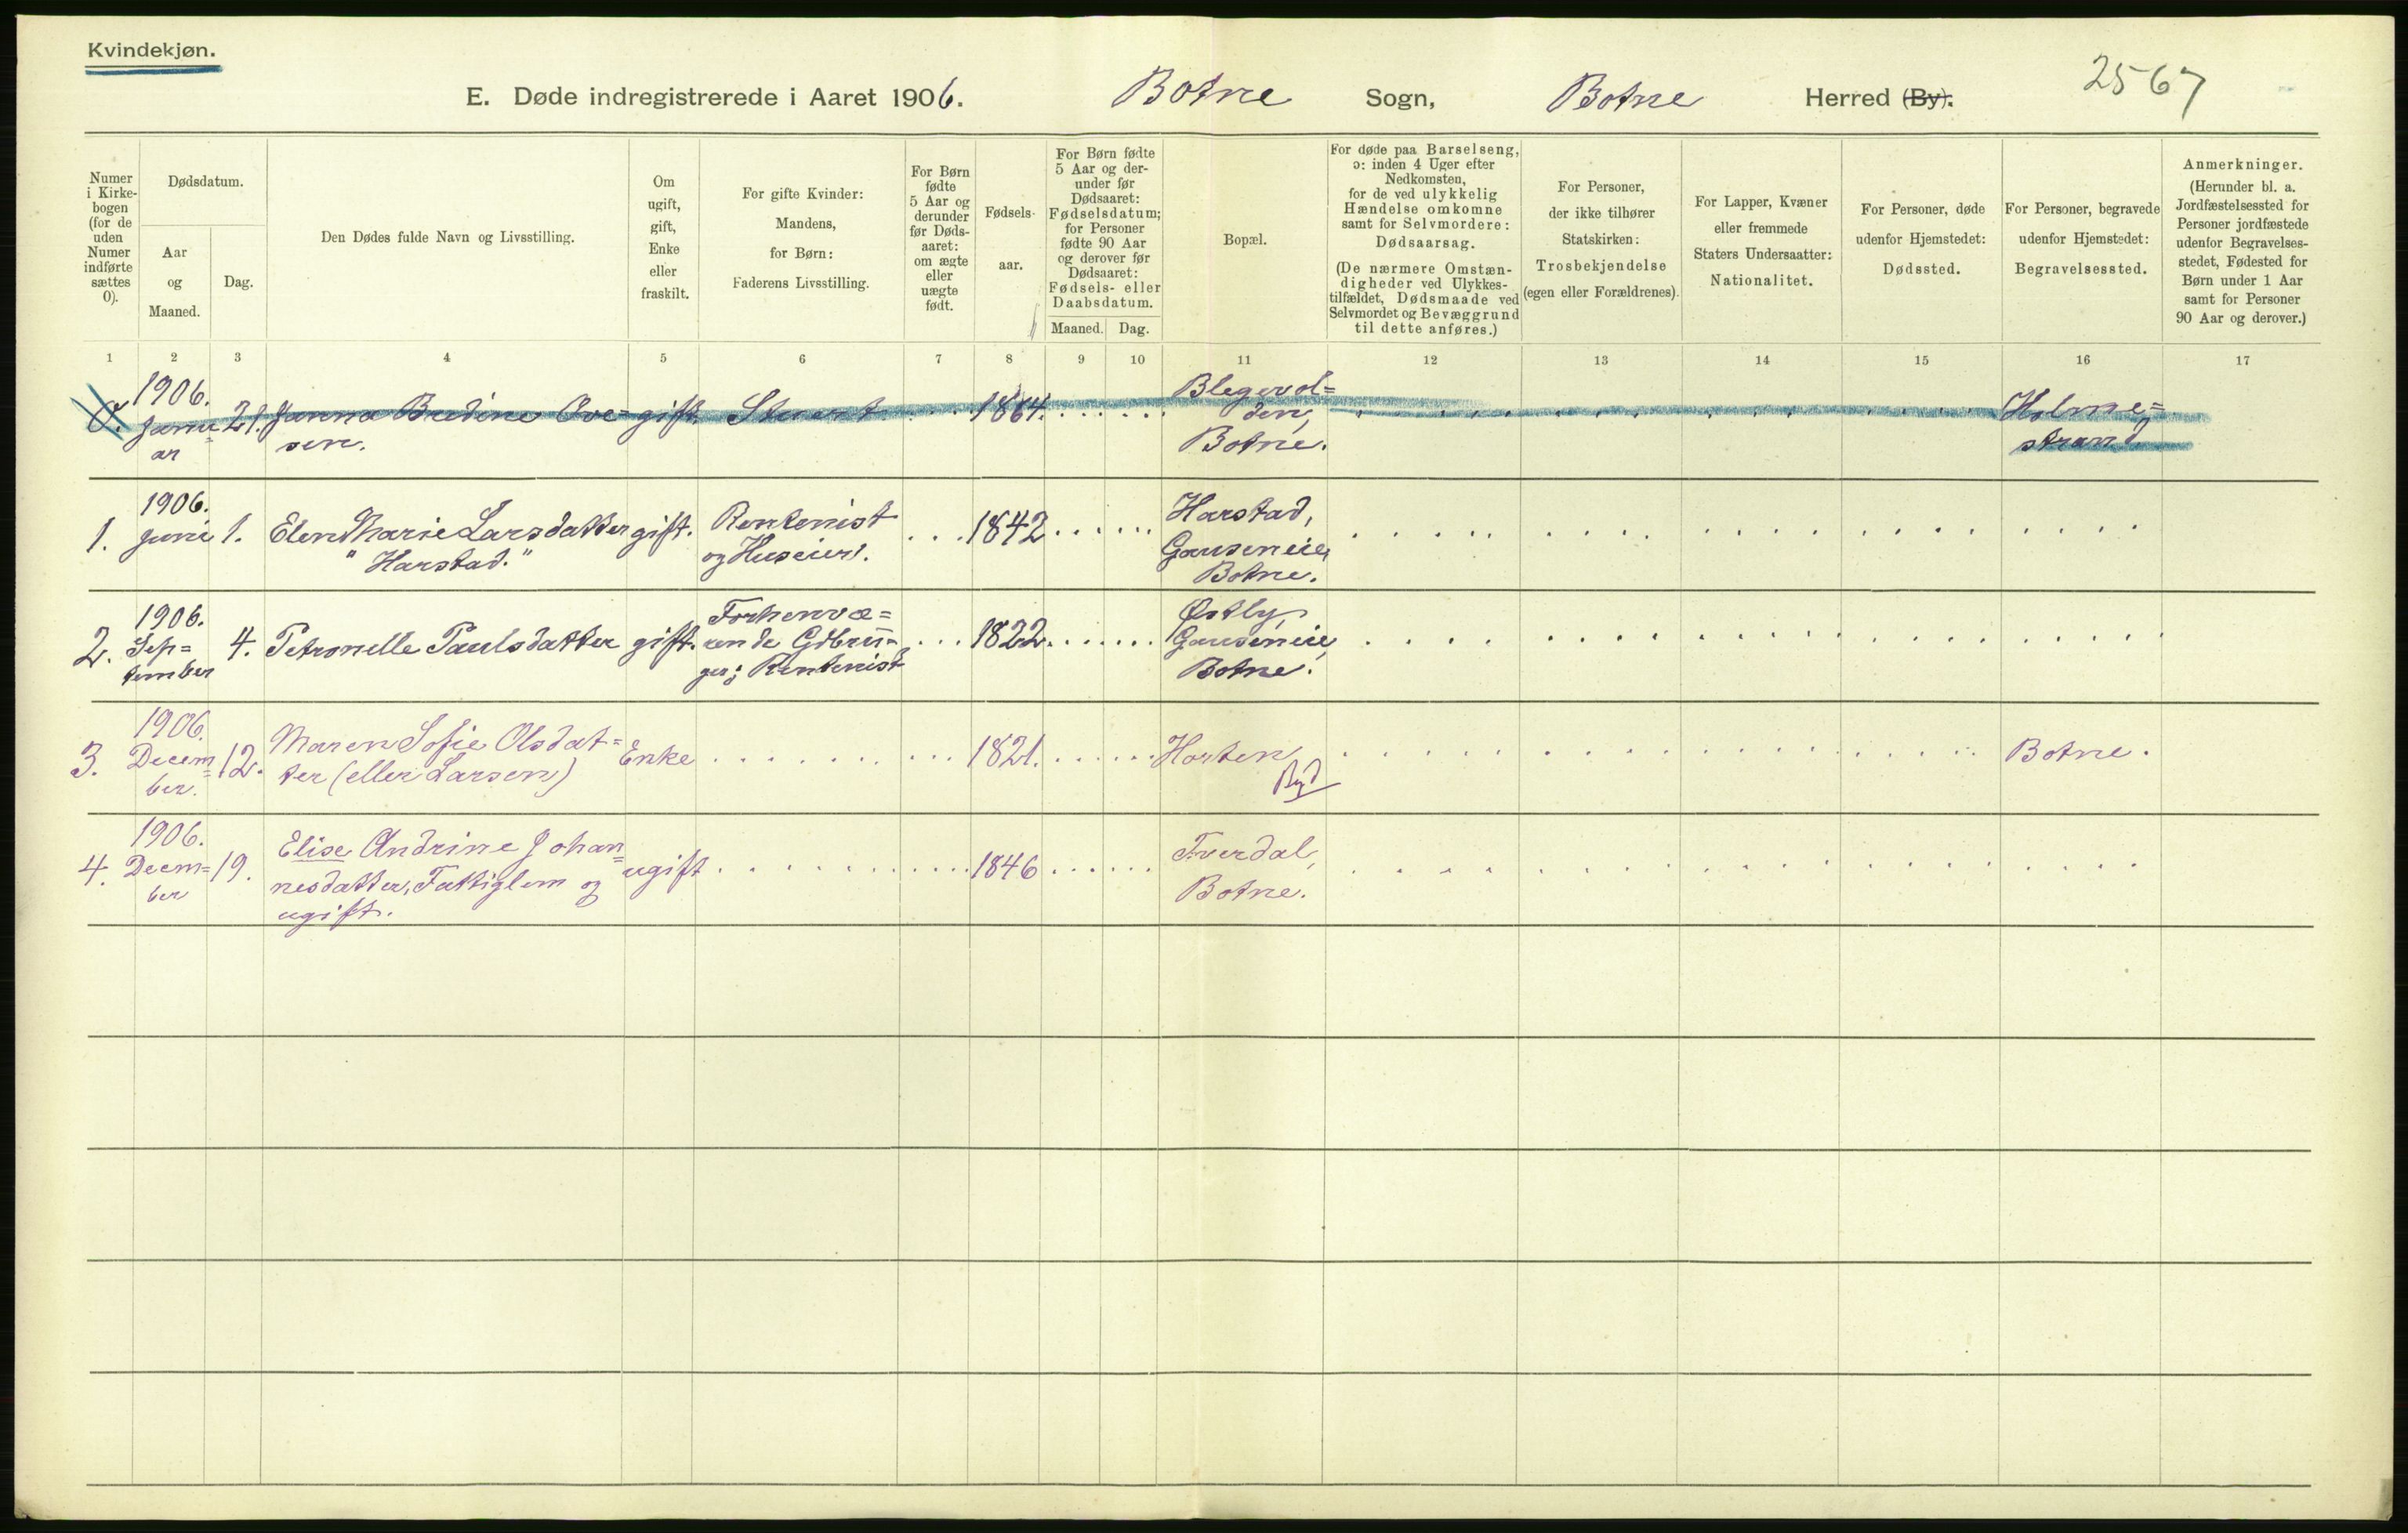 Kvindekjøn.
2567
E. Døde indregistrerede i Aaret 1906. Botne Sogn, Botne Herred (By).
Numer i Kirkebogen (for de uden Numer indførte sættes 0).
Dødsdatum.
Aar og Maaned.
Dag.
Den Dødes fulde Navn og Livsstilling.
Om ugift, gift, Enke eller fraskilt.
For gifte Kvinder: Mandens, for Børn: Faderens Livsstilling.
For Børn fødte 5 Aar og derunder før Døds-aaret: om ægte eller uægte født.
Fødsels-aar.
For Børn fødte 5 Aar og derunder før Dødsaaret: Fødselsdatum; for Personer fødte 90 Aar og derover før Dødsaaret: Fødsels- eller Daabsdatum.
Maaned. Dag.
Bopæl.
For døde paa Barselseng, ɔ: inden 4 Uger efter Nedkomsten, for de ved ulykkelig Hændelse omkomne samt for Selvmordere: Dødsaarsag.
(De nærmere Omstændigheder ved Ulykkestilfældet, Dødsmaade ved Selvmordet og Bevæggrund til dette anføres.)
For Personer, der ikke tilhører Statskirken: Trosbekjendelse (egen eller Forældrenes).
For Lapper, Kvæner eller fremmede Staters Undersaatter: Nationalitet.
For Personer, døde udenfor Hjemstedet: Dødssted.
For Personer, begravede udenfor Hjemstedet: Begravelsessted.
Anmerkninger.
(Herunder bl. a. Jordfæstelsessted for Personer jordfæstede udenfor Begravelsesstedet, Fødested for Børn under 1 Aar samt for Personer 90 Aar og derover.)
1 2 3 4 5 6 7 8 9 10 11 12 13 14 15 16 17
1906. Blegevol=
0. Janu= 21. Janna Bredine Ove= gift. 1864. den, Holme=
ar sen. Botne. strand
1906. Rentenist Harstad,
1. Juni 1. Elen Marie Larsdatter gift. 1842 Gauseneie,
"Harstad." og Huseier. Botne.
1906. Forhenvæ= Østby,
2. Sep= 4. Petronelle Paulsdatter gift. rende Gdbru= 1822 Gauseneie,
tember ger; Rentenist Botne.
1906. Maren Sofie Olsdat=
3. Decem= 12. Enke 1821. Horten Botne.
ber. ter (eller Larsen)
1906. Elise Andrine Johan= Tverdal,
4. Decem= 19. nesdatter, Fattiglem og ugift 1846
ber ugift. Botne.